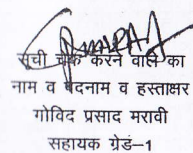 सूची चेक करने वाले का
नाम व पदनाम व हस्ताक्षर
गोविद प्रसाद मरावी
सहायक ग्रेड-1